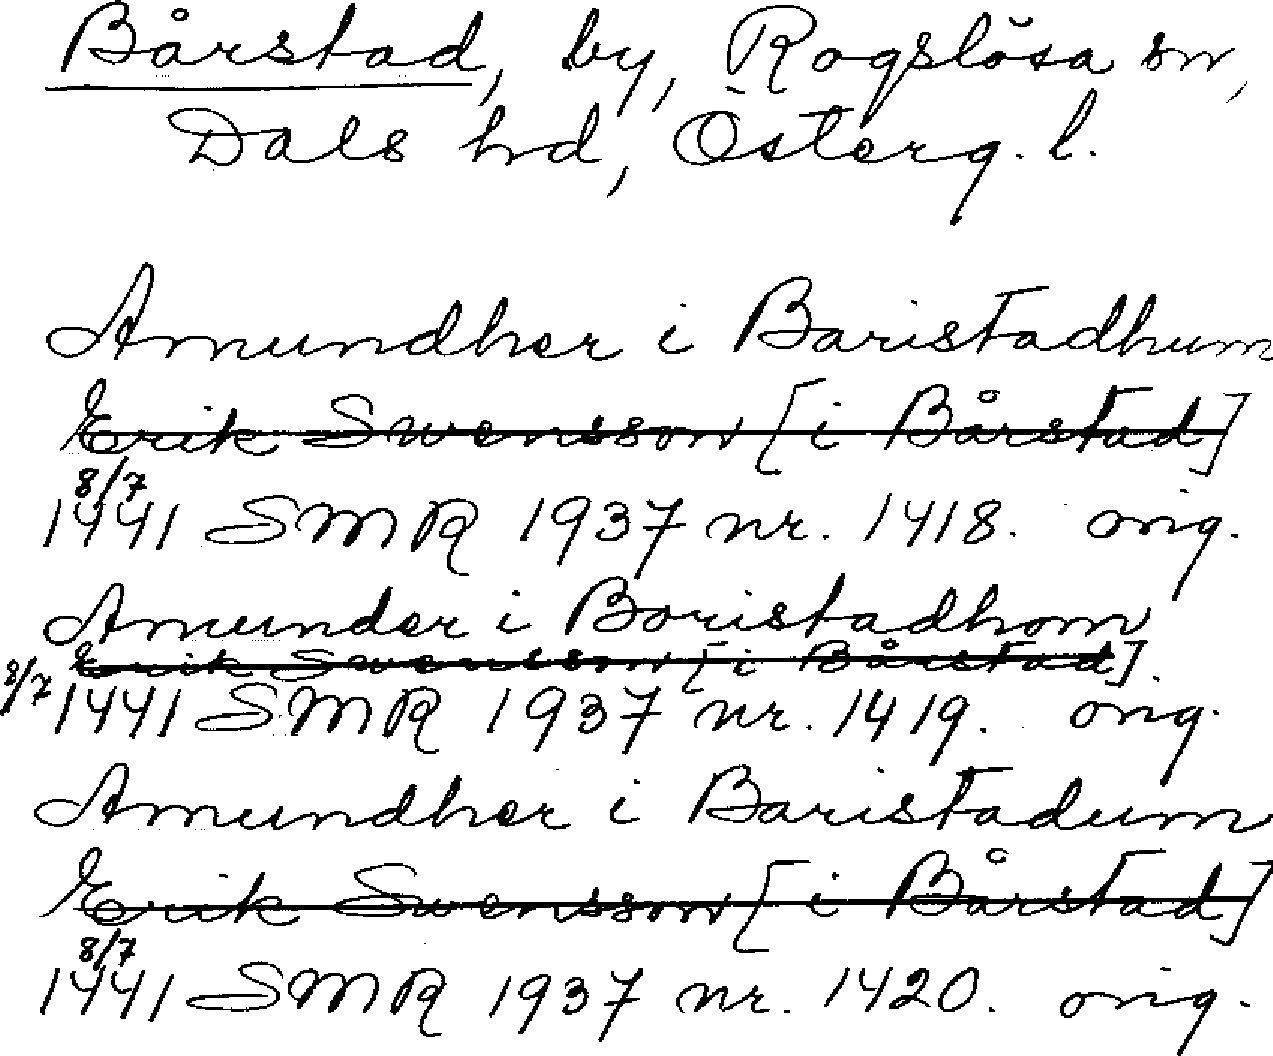 Bårstad, by, Rogslösa sn,
Dals hd, Österg. l.
Amundher i Baristadhum
Erik Swensson [i Bårstad]
8/7
1441 SMR 1937 nr. 1418. orig.
Amunder i Boristadhom
Erik Swensson [i Bårstad].
8/7 1441 SMR 1937 nr. 1419. orig.
Amundher i Baristadum
Erik Swensson [i Bårstad]
8/7
1441 SMR 1937 nr. 1420. orig.